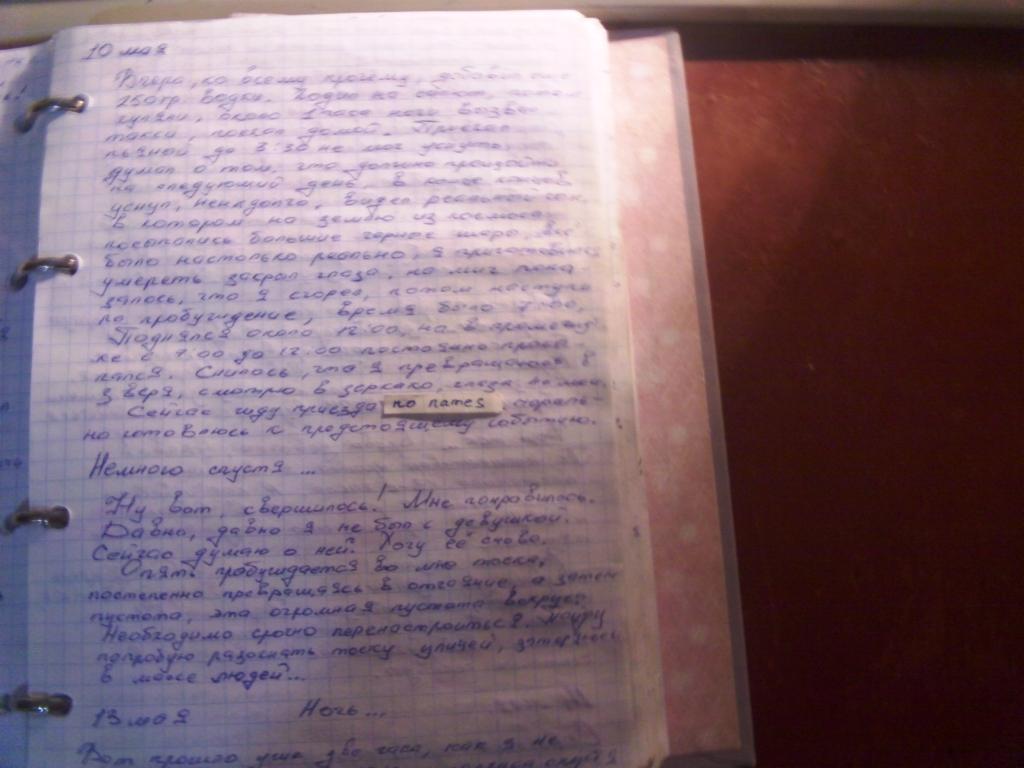 10 мая
Вчера, ко всему прочему, добавил еще
250гр. водки.
гуляли, около 1 часа ночи вызвал
такси, поехал домой. Приехал
пьяной до 3:30 не мог уснуть,
думал о том, что должно произойти
на следующий день, в конце концов
уснул, ненадолго. Видел реальной сон,
в котором на землю из космоса
посыпались большие черные шары, всё
было настолько реально, я приготовился
умереть закрыл глаза, на миг пока-
залось, что я сгорел, потом наступи
ло пробуждение, время было 7:00,
Поднялся около 12:00, но в промежут
ке с 7:00 до 12:00 постоянно просы-
пался. Снилось, что я превращаюсь в
зверя, смотрю в зеркало, глаза не мои.
Сейчас жду приезда no names
но готовлюсь к предстоящему событию.
Немного спустя ...
Ну вот, свершилось! Мне понравилось.
Давно, давно я не был с девушкой.
Сейчас думаю о ней? Хочу её снова.
Опять пробуждается во мне тоска,
постепенно превращаясь в отчаяние, а затем
пустота, эта огромная пустота вокруг.
Необходимо срочно перенастроиться.
попробую разогнать тоску улицей,
в массе людей...
13 мая Ночь...
Вот прошло уже два часа, как я не